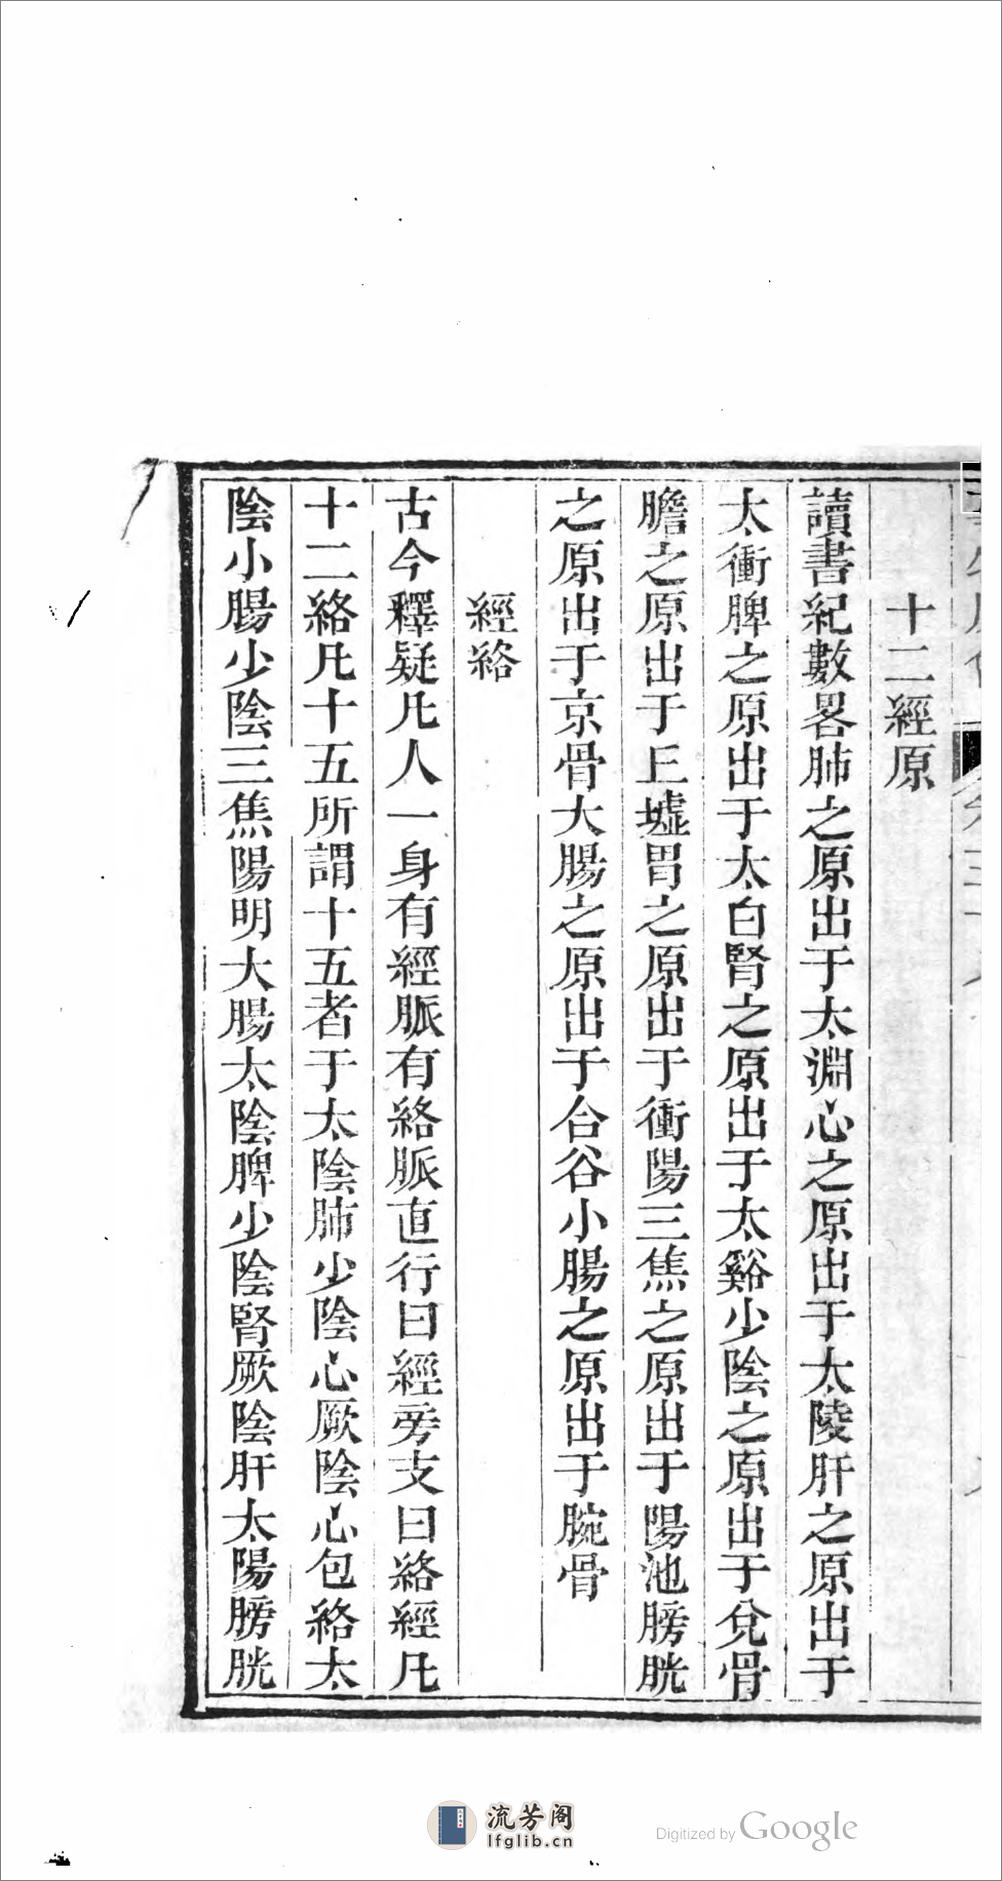 十二經原
讀書紀數畧肺之原出于太淵心之原出于太陵肝之原出于
太衝脾之原出于太白腎之原出于太谿少陰之原出于兌骨
膽之原出于丘墟胃之原出于衝陽三焦之原出于陽池膀胱
之原出于京骨大腸之原出于合谷小腸之原出于腕骨
經絡
古今釋疑凡人一身有經脈有絡脈直行曰經旁支曰絡經凡
十二絡凡十五所謂十五者于太陰肺少陰心厥陰心包絡太
陰小腸少陰三焦陽明大腸太陰脾少陰腎厥陰肝太陽膀胱
流芳阁
lfglib.cn
Digitized by Google